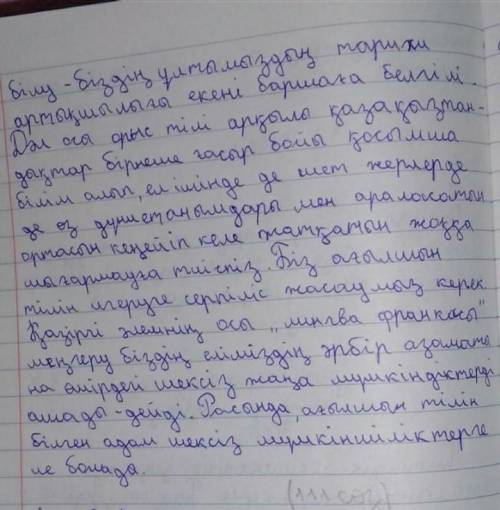 білу - біздің ұлтымыздың тарихи
артықшылығы екені баршаға белгілі.
Дәл осы орыс тілі арқылы қазақыстан-
дықтар бірнеше ғасыр бойы қосымша
білім алып, ел ішінде де шет жерлерде
де өз дүниетанымдары мен араласатын
ортасын кеңейіп келе жатқатын жоққа
шығармауға тиіспіз. Біз ағылшын
тілін игеруге серпіліс жасауымыз керек.
Қазіргі әлемнің осы „лингва франкасы"
меңгеру біздің еліміздің әрбір азаматы
на өмірдегі шексіз жаңа мүмкіндіктерді
ашады - дейді. Расында, ағылшын тілін
білген адам шексіз мүмкіншіліктерге
ие болада.
(111 сөз)